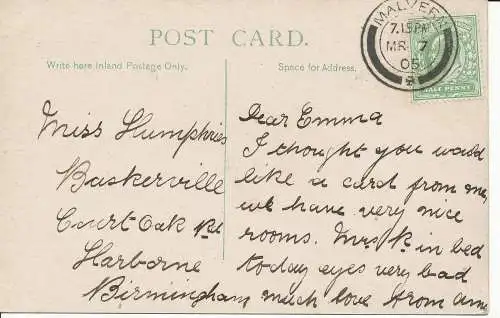 POST CARD.
Write here Inland Postage Only.
Space for Address.
MALVERN
7.15PM
MR 7
05
HALF PENNY
Miss Humphries
Baskerville
Court Oak Rd
Harborne
Birmingham
Dear Emma
I thought you would
like a card from me,
we have very nice
rooms. Mrs R in bed
today eyes very bad
much love from